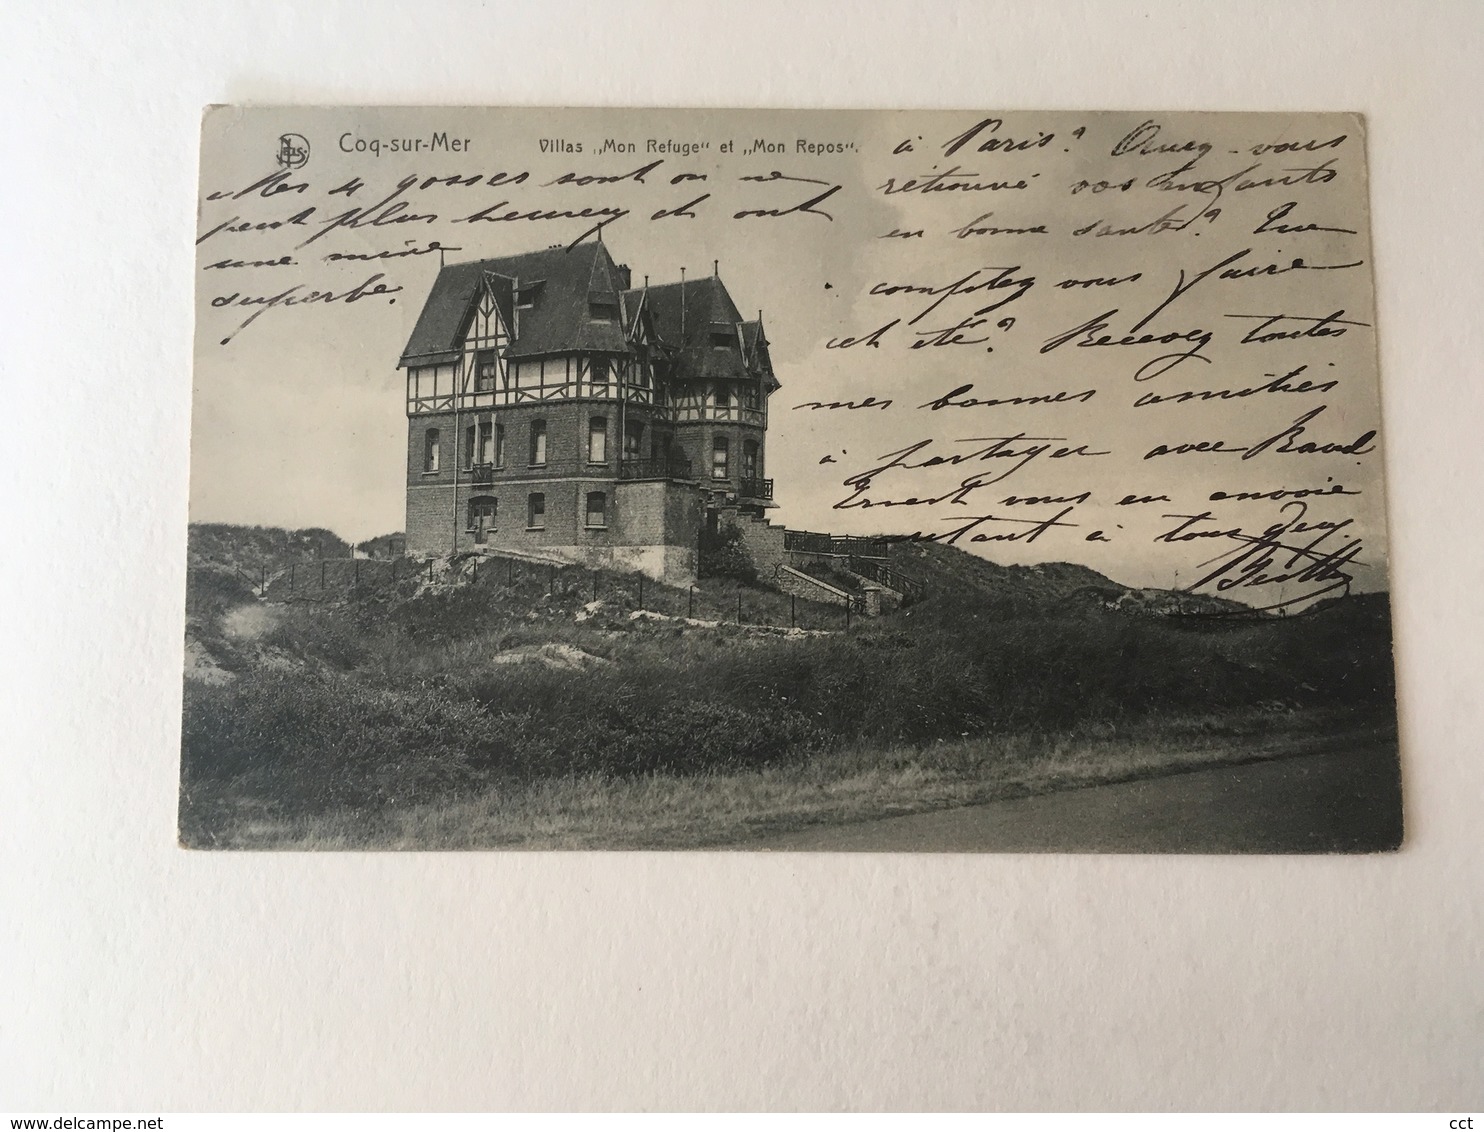 Coq-sur-Mer
Villas „Mon Refuge" et „Mon Repos".
Mes 4 gosses sont on ne
peut plus heureux et ont
une mine
superbe.
à Paris? Avez-vous
retrouvé vos enfants
en bonne santé? Que
comptez vous faire
cet été? Recevez toutes
mes bonnes amitiés
à partager avec
Ernest vous en envoie
autant à tous deux.
Delcampe.net
cct